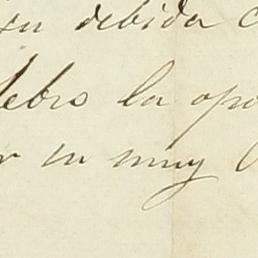 su debida c
lebro la opo
r su muy